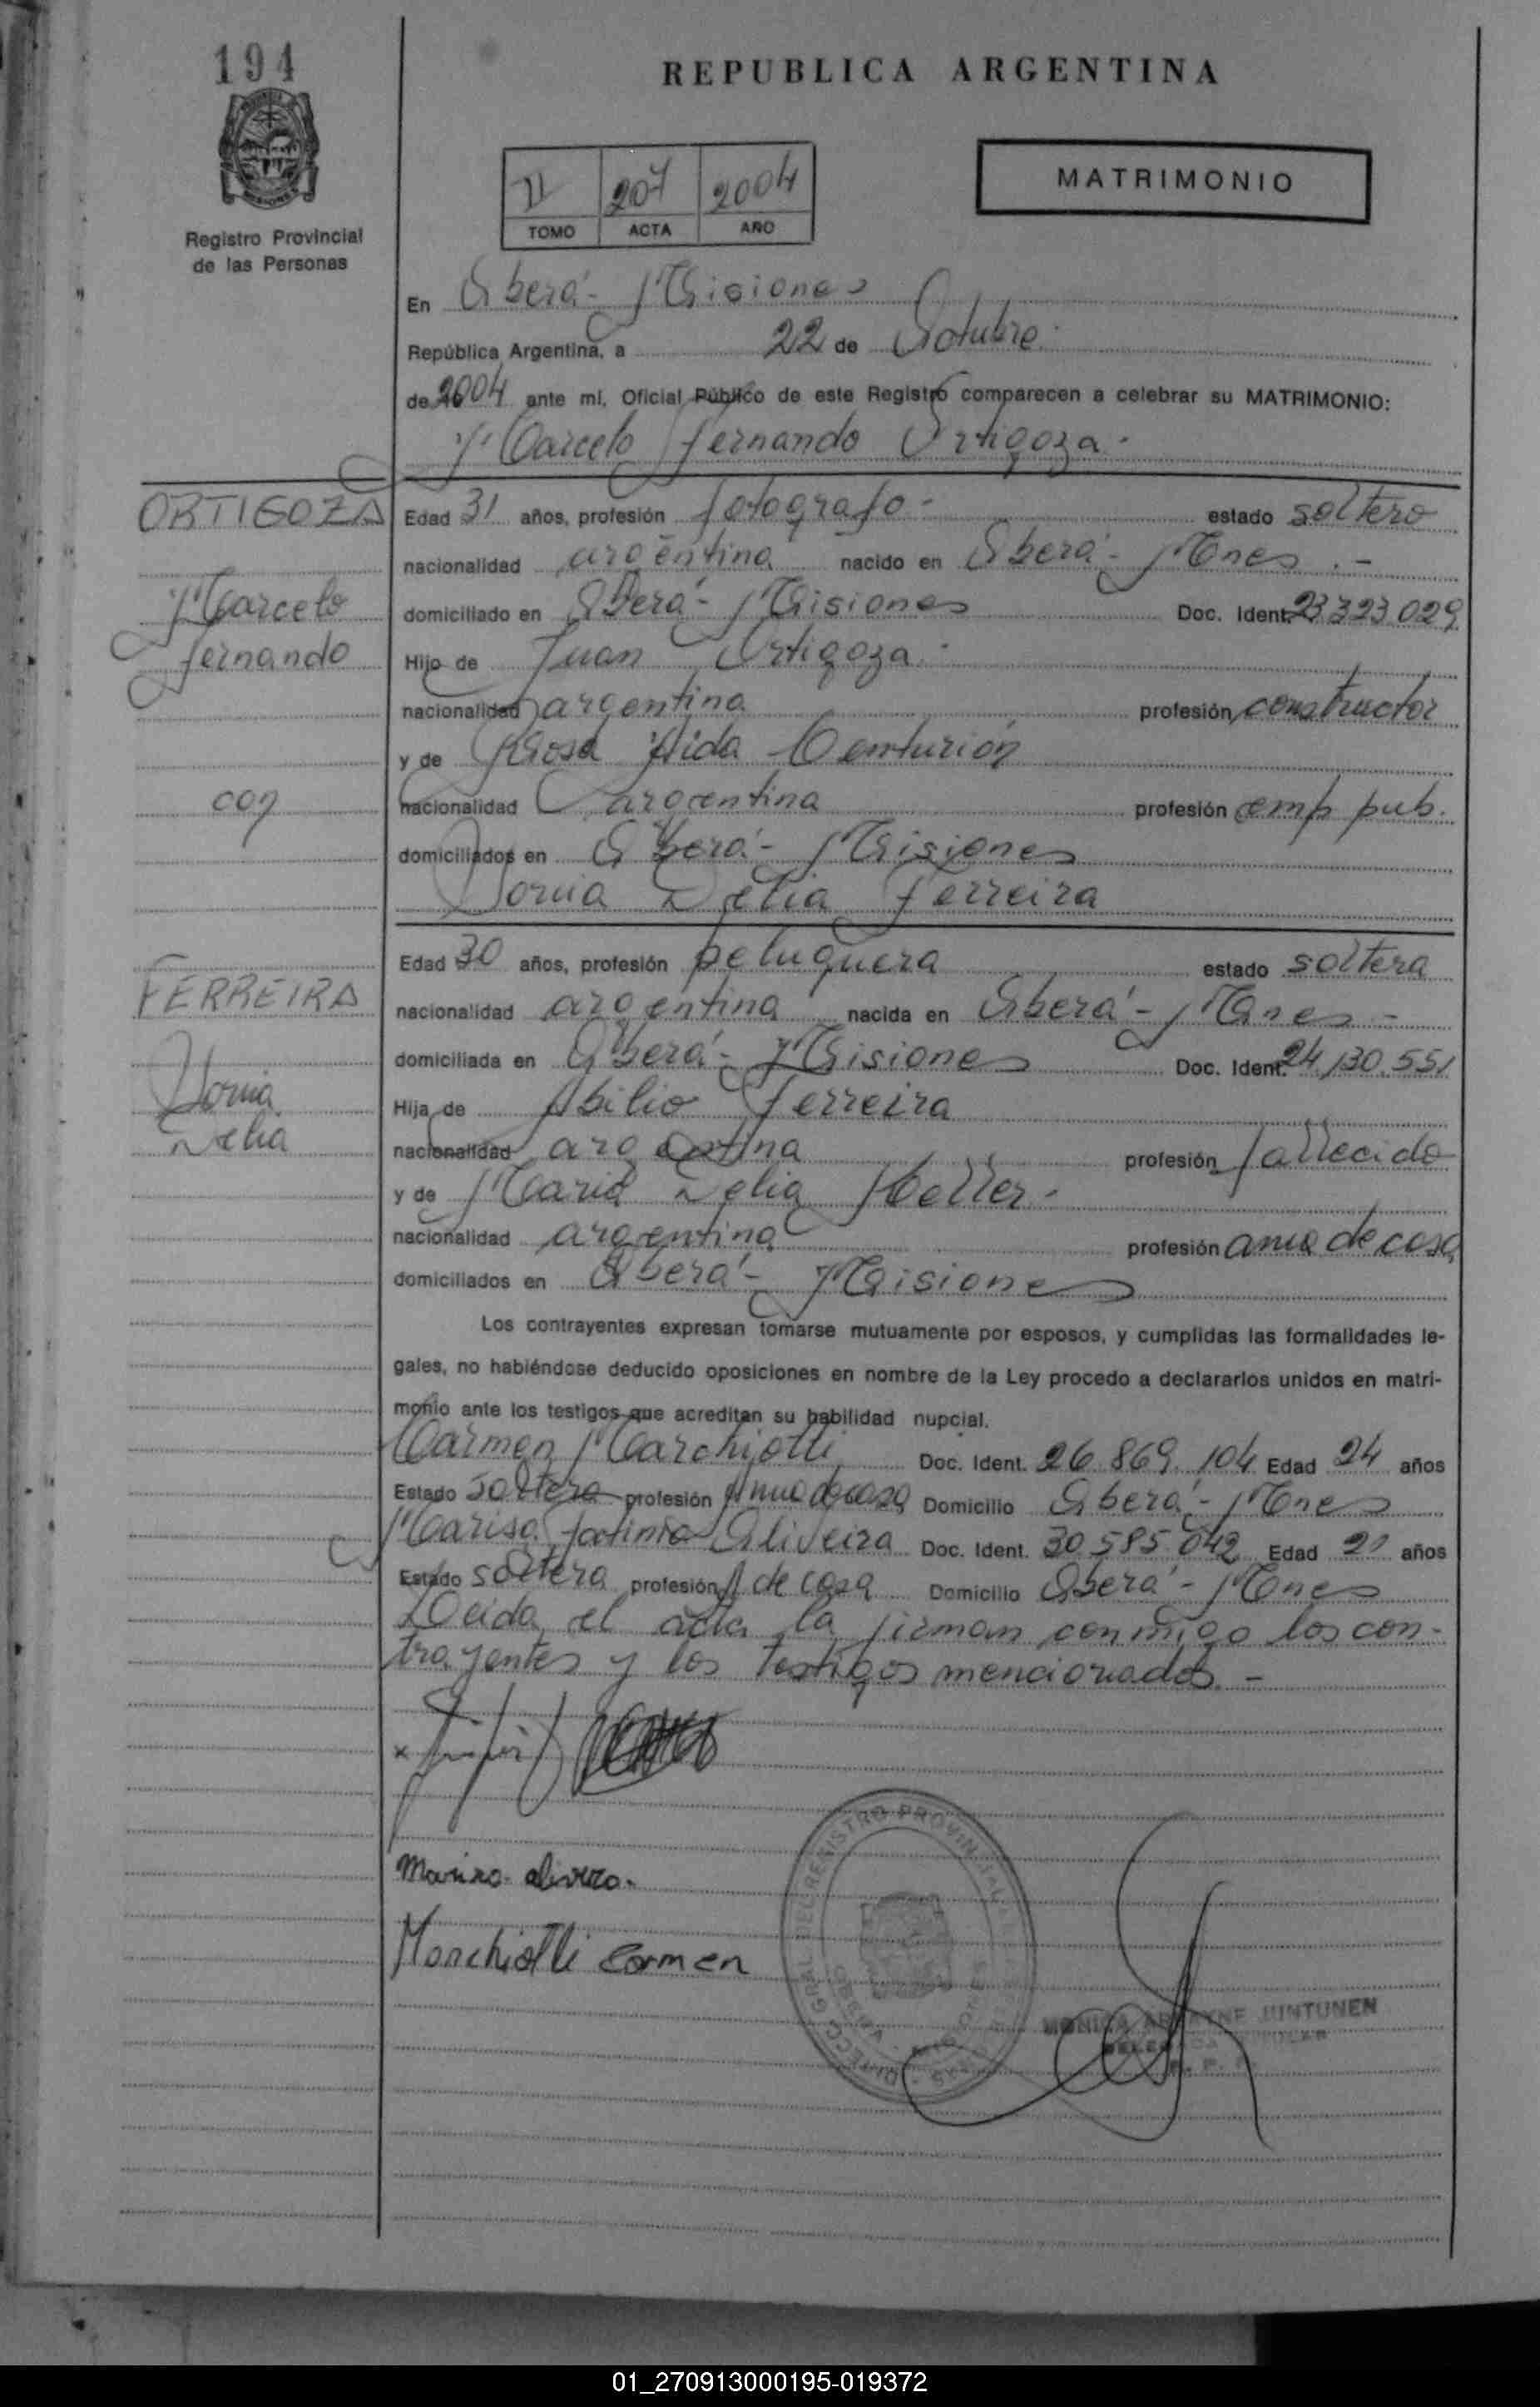 194
REPUBLICA ARGENTINA
II 207 2004
TOMO ACTA AÑO
MATRIMONIO
Registro Provincial
de las Personas
En Oberá - Misiones
República Argentina, a 22 de Octubre
de 2004 ante mí, Oficial Público de este Registro comparecen a celebrar su MATRIMONIO:
Marcelo Fernando Ortigoza.
ORTIGOZA
Marcelo
Fernando
con
Edad 31 años, profesión fotografo - estado soltero
nacionalidad argentina nacido en Oberá - Mnes . -
domiciliado en Oberá - Misiones Doc. Ident. 23.323.029
Hijo de Juan Ortigoza.
nacionalidad argentina profesión constructor
y de Rosa Aida Centurión
nacionalidad argentina profesión emp pub.
domiciliados en Oberá - Misiones
Sonia Delia Ferreira
FERREIRA
Sonia
Delia
Edad 30 años, profesión peluquera estado soltera
nacionalidad argentina nacida en Oberá - Mnes -
domiciliada en Oberá - Misiones Doc. Ident. 24.130.551
Hija de Abilio Ferreira
nacionalidad argentina profesión fallecido
y de Maria Delia Heller -
nacionalidad argentina profesión ama de casa
domiciliados en Oberá - Misiones
Los contrayentes expresan tomarse mutuamente por esposos, y cumplidas las formalidades le-
gales, no habiéndose deducido oposiciones en nombre de la Ley procedo a declararlos unidos en matri-
monio ante los testigos que acreditan su habilidad nupcial.
Carmen Marchiotti Doc. Ident. 26.869.104 Edad 24 años
Estado Soltera profesión Ama de casa Domicilio Oberá - Mnes
Marisa Fatima Oliveira Doc. Ident. 30.585.042 Edad 21 años
Estado soltera profesión A de casa Domicilio Oberá - Mnes
Leida el acta la firman conmigo los con-
trayentes y los testigos mencionados. -
Marchiotti Carmen
MONICA JUNTUNEN
01_270913000195-019372